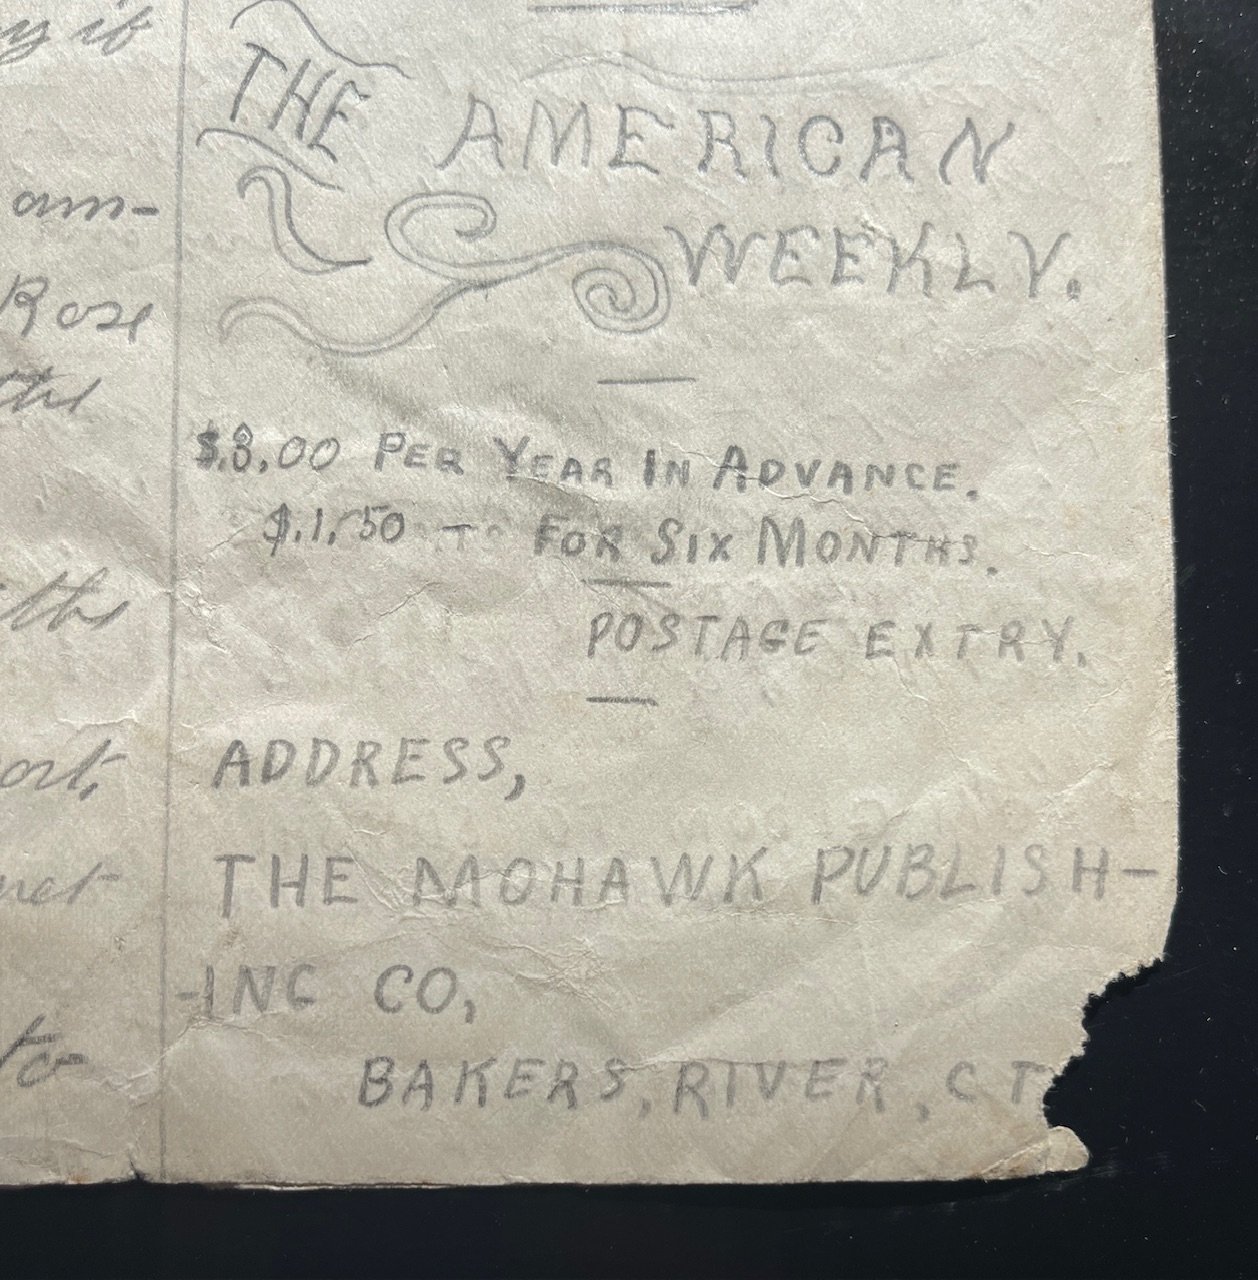 y if
am-
Rose
the
the
ort,
net
to
THE AMERICAN
WEEKLY.
$.3.00 PER YEAR IN ADVANCE.
$.1.50 — FOR SIX MONTHS.
POSTAGE EXTRY.
ADDRESS,
THE MOHAWK PUBLISH-
-ING CO,
BAKERS, RIVER, CT